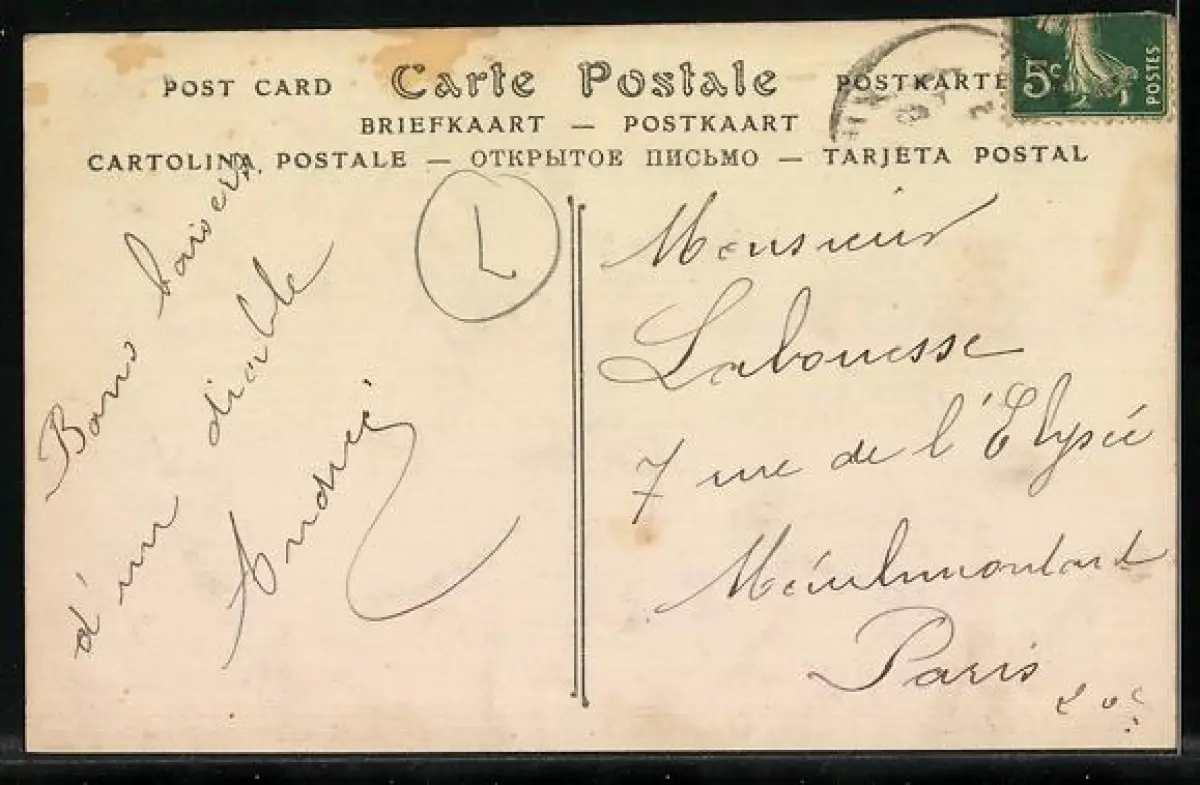 POST CARD Carte Postale POSTKARTE
BRIEFKAART — POSTKAART
CARTOLINA POSTALE — ОТКРЫТОЕ ПИСЬМО — TARJETA POSTAL
5c
POSTES
Bons baisers
d'un diable
André
L
Monsieur
Labouesse
7 rue de l'Elysée
Ménilmontant
Paris
20e